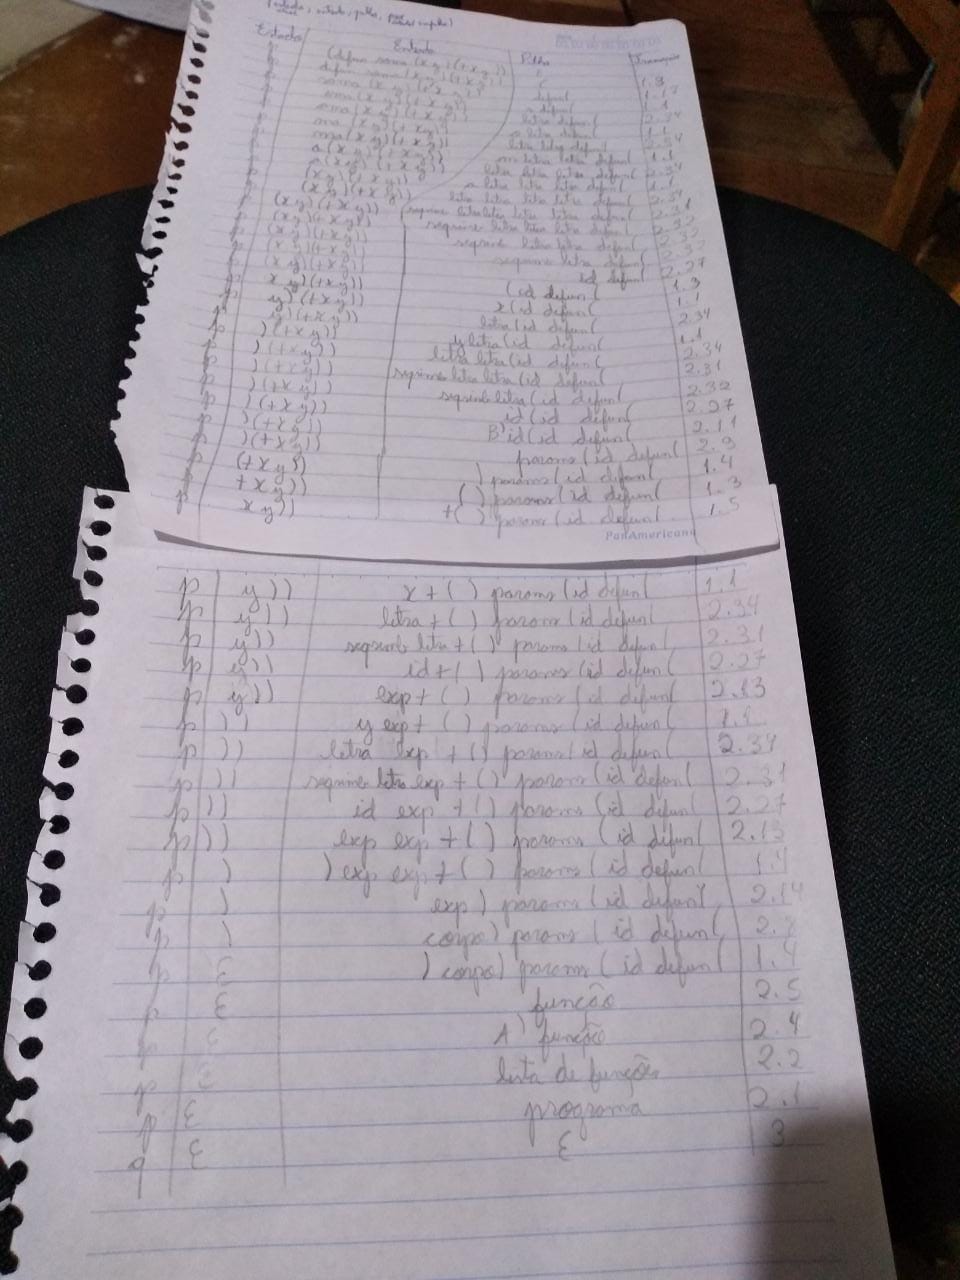 Estado Entrada Pilha Transição
p (defun soma (x y) (+ x y)) ε
p defun soma (x y) (+ x y)) ( 1.3
p soma (x y) (+ x y)) defun(
p oma (x y) (+ x y)) s defun( 1.1
p oma (x y) (+ x y)) letra defun( 2.34
p ma (x y) (+ x y)) o letra defun( 1.1
p ma (x y) (+ x y)) letra letra defun( 2.34
p a (x y) (+ x y)) m letra letra defun( 1.1
p a (x y) (+ x y)) letra letra letra defun( 2.34
p (x y) (+ x y)) a letra letra letra defun( 1.1
p (x y) (+ x y)) letra letra letra letra defun( 2.34
p (x y) (+ x y)) seqnime letra letra letra letra defun( 2.31
p (x y) (+ x y)) seqnime letra letra letra defun( 2.32
p (x y) (+ x y)) seqnime letra letra defun( 2.32
p (x y) (+ x y)) seqnime letra defun( 2.32
p (x y) (+ x y)) id defun( 2.27
p x y) (+ x y)) (id defun( 1.3
p y) (+ x y)) x(id defun( 1.1
p y) (+ x y)) letra(id defun( 2.34
p ) (+ x y)) y letra(id defun( 1.1
p ) (+ x y)) letra letra(id defun( 2.34
p ) (+ x y)) seqnime letra letra(id defun( 2.31
p ) (+ x y)) seqnime letra (id defun( 2.32
p ) (+ x y)) id(id defun( 2.27
p ) (+ x y)) B'id(id defun( 2.11
p ) (+ x y)) params (id defun( 2.9
p (+ x y)) ) params (id defun( 1.4
p + x y)) ( ) params (id defun( 1.3
p x y)) +( ) params (id defun( 1.5
PanAmericana
p y)) x + ( ) params (id defun( 1.1
p y)) letra + ( ) params (id defun( 2.34
p y)) seqnime letra + ( ) params (id defun( 2.31
p y)) id + ( ) params (id defun( 2.27
p y)) exp + ( ) params (id defun( 2.13
p )) y exp + ( ) params (id defun( 1.1
p )) letra exp + ( ) params (id defun( 2.34
p )) seqnime letra exp + ( ) params (id defun( 2.31
p )) id exp + ( ) params (id defun( 2.27
p )) exp exp + ( ) params (id defun( 2.13
p ) ) exp exp + ( ) params (id defun( 1.4
p ) exp ) params (id defun( 2.14
p ) corpo) params (id defun( 2.8
p ε ) corpo) params (id defun( 1.4
p ε função 2.5
p ε A' função 2.4
p ε lista de funções 2.2
p ε programa 2.1
q ε ε 3